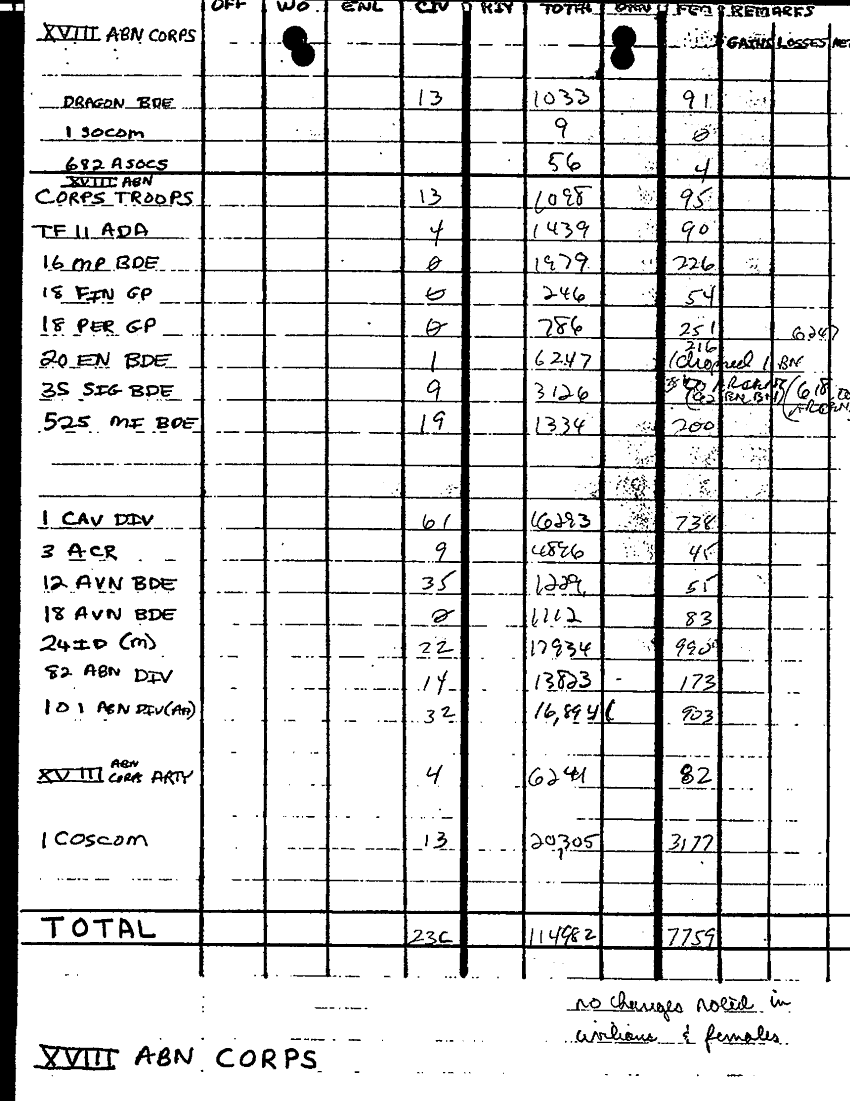 OFF WO ENL CIV TOTAL FEM REMARKS
XVIII ABN CORPS GAINS LOSSES
DRAGON BDE 13 1033 91
1 SOCOM 9 0
682 ASOCS 56 4
XVIII ABN
CORPS TROOPS 13 1098 95
TF 11 ADA 4 1439 90
16 MP BDE 0 1979 226
18 FIN GP 0 246 54
18 PER GP 0 786 251 6247
216
20 EN BDE 1 6247 (dropped 1 BN
35 SIG BDE 9 3126
525 MI BDE 19 1334 200
1 CAV DIV 61 16293 738
3 ACR 9 4896 45
12 AVN BDE 35 1229 55
18 AVN BDE 0 1112 83
24 ID (M) 22 17934 990
82 ABN DIV 14 13823 173
101 ABN DIV (AA) 32 16,894 903
ABN
XVIII CORPS ARTY 4 6241 82
1 COSCOM 13 20,305 3177
TOTAL 236 114982 7759
no changes noted in
civilians & females
XVIII ABN CORPS